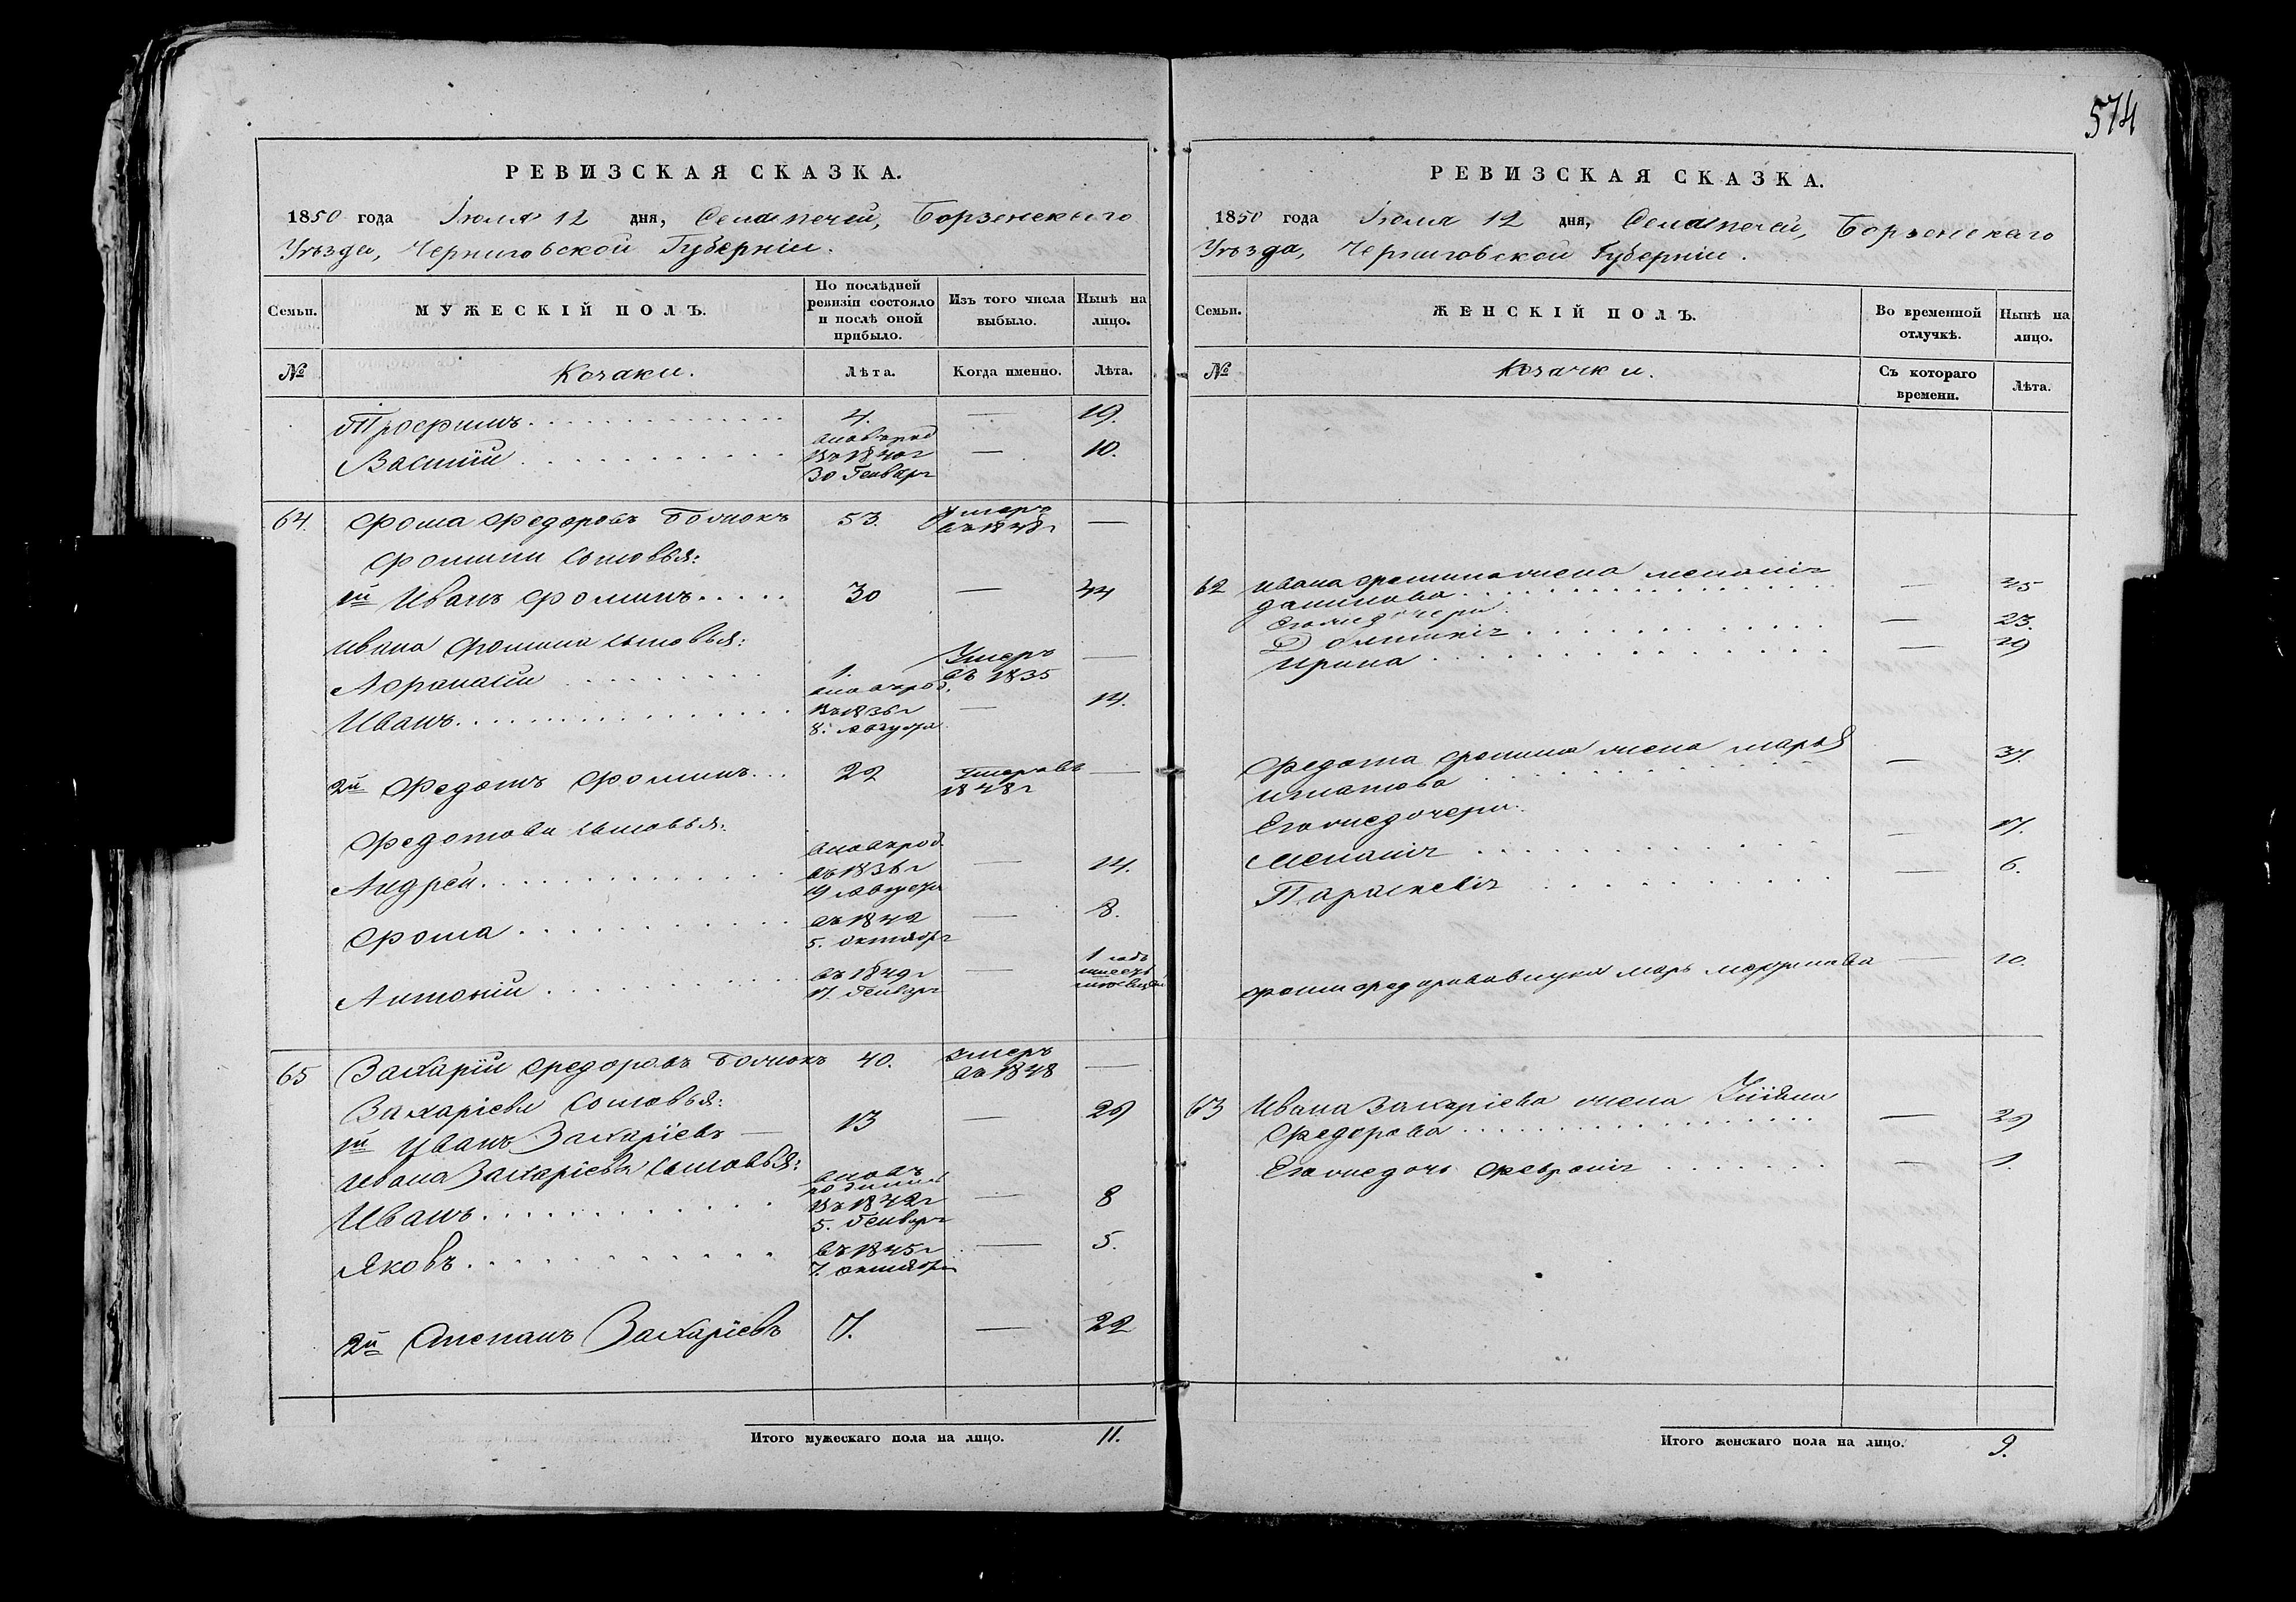 574
РЕВИЗСКАЯ СКАЗКА.
1850 года Іюля 12 дня, Села Печей, Борзенскаго
Уѣзда, Черниговской Губерніи.
Семьи. МУЖЕСКІЙ ПОЛЪ. По послѣдней ревизіи состояло и послѣ оной прибыло. Изъ того числа выбыло. Нынѣ на лицо.
№ Козаки. Лѣта. Когда именно. Лѣта.
Трофимъ 4. — 19.
Василій вновь род въ 1840 г 30 Генваря — 10.
64. Фома Федоровъ 53. Умеръ —
Фомини сыновья:
1й Иванъ Фоминъ 30 — 44
Ивана Фомина сыновья:
Афанасій 1. Умеръ въ 1835 —
Иванъ вновь род. въ 1836 г 8. Августа — 14.
2й Федотъ Фоминъ 22 Умеръ въ 1848 г —
Федотова сыновья:
Андрей вновь род въ 1836 г 19 Августа — 14.
Фома въ 1842 5. октября — 8.
Антоній въ 1849 г 17. Генваря — 1 годъ
65 Захарій Федоровъ 40. Умеръ въ 1848 —
Захаріеви сыновья:
1й Иванъ Захаріевъ 13 — 29
Ивана Захаріева сыновья:
Иванъ вновь родился въ 1842 г 5. Генваря — 8
Яковъ въ 1845 г 7. октября — 5.
2й Степанъ Захаріевъ 7. — 22
Итого мужескаго пола на лицо. 11.
РЕВИЗСКАЯ СКАЗКА.
1850 года Іюля 12 дня, Села Печей, Борзенскаго
Уѣзда, Черниговской Губерніи.
Семьи. ЖЕНСКІЙ ПОЛЪ. Во временной отлучкѣ. Нынѣ на лицо.
№ Козачки. Съ котораго времени. Лѣта.
62 Ивана Фомина жена Меланія
Данилова — 45
Его же дочери
Домникія — 23.
Ирина — 19
Федота Фомина жена Марья
Игнатова — 37.
Его же дочери:
Меланія — 17.
Параскевія — 6.
Фоми Федорова внука Марья — 10.
63 Ивана Захаріева жена
Федорова — 29
Его же дочь Февронія — 1.
Итого женскаго пола на лицо. 9.